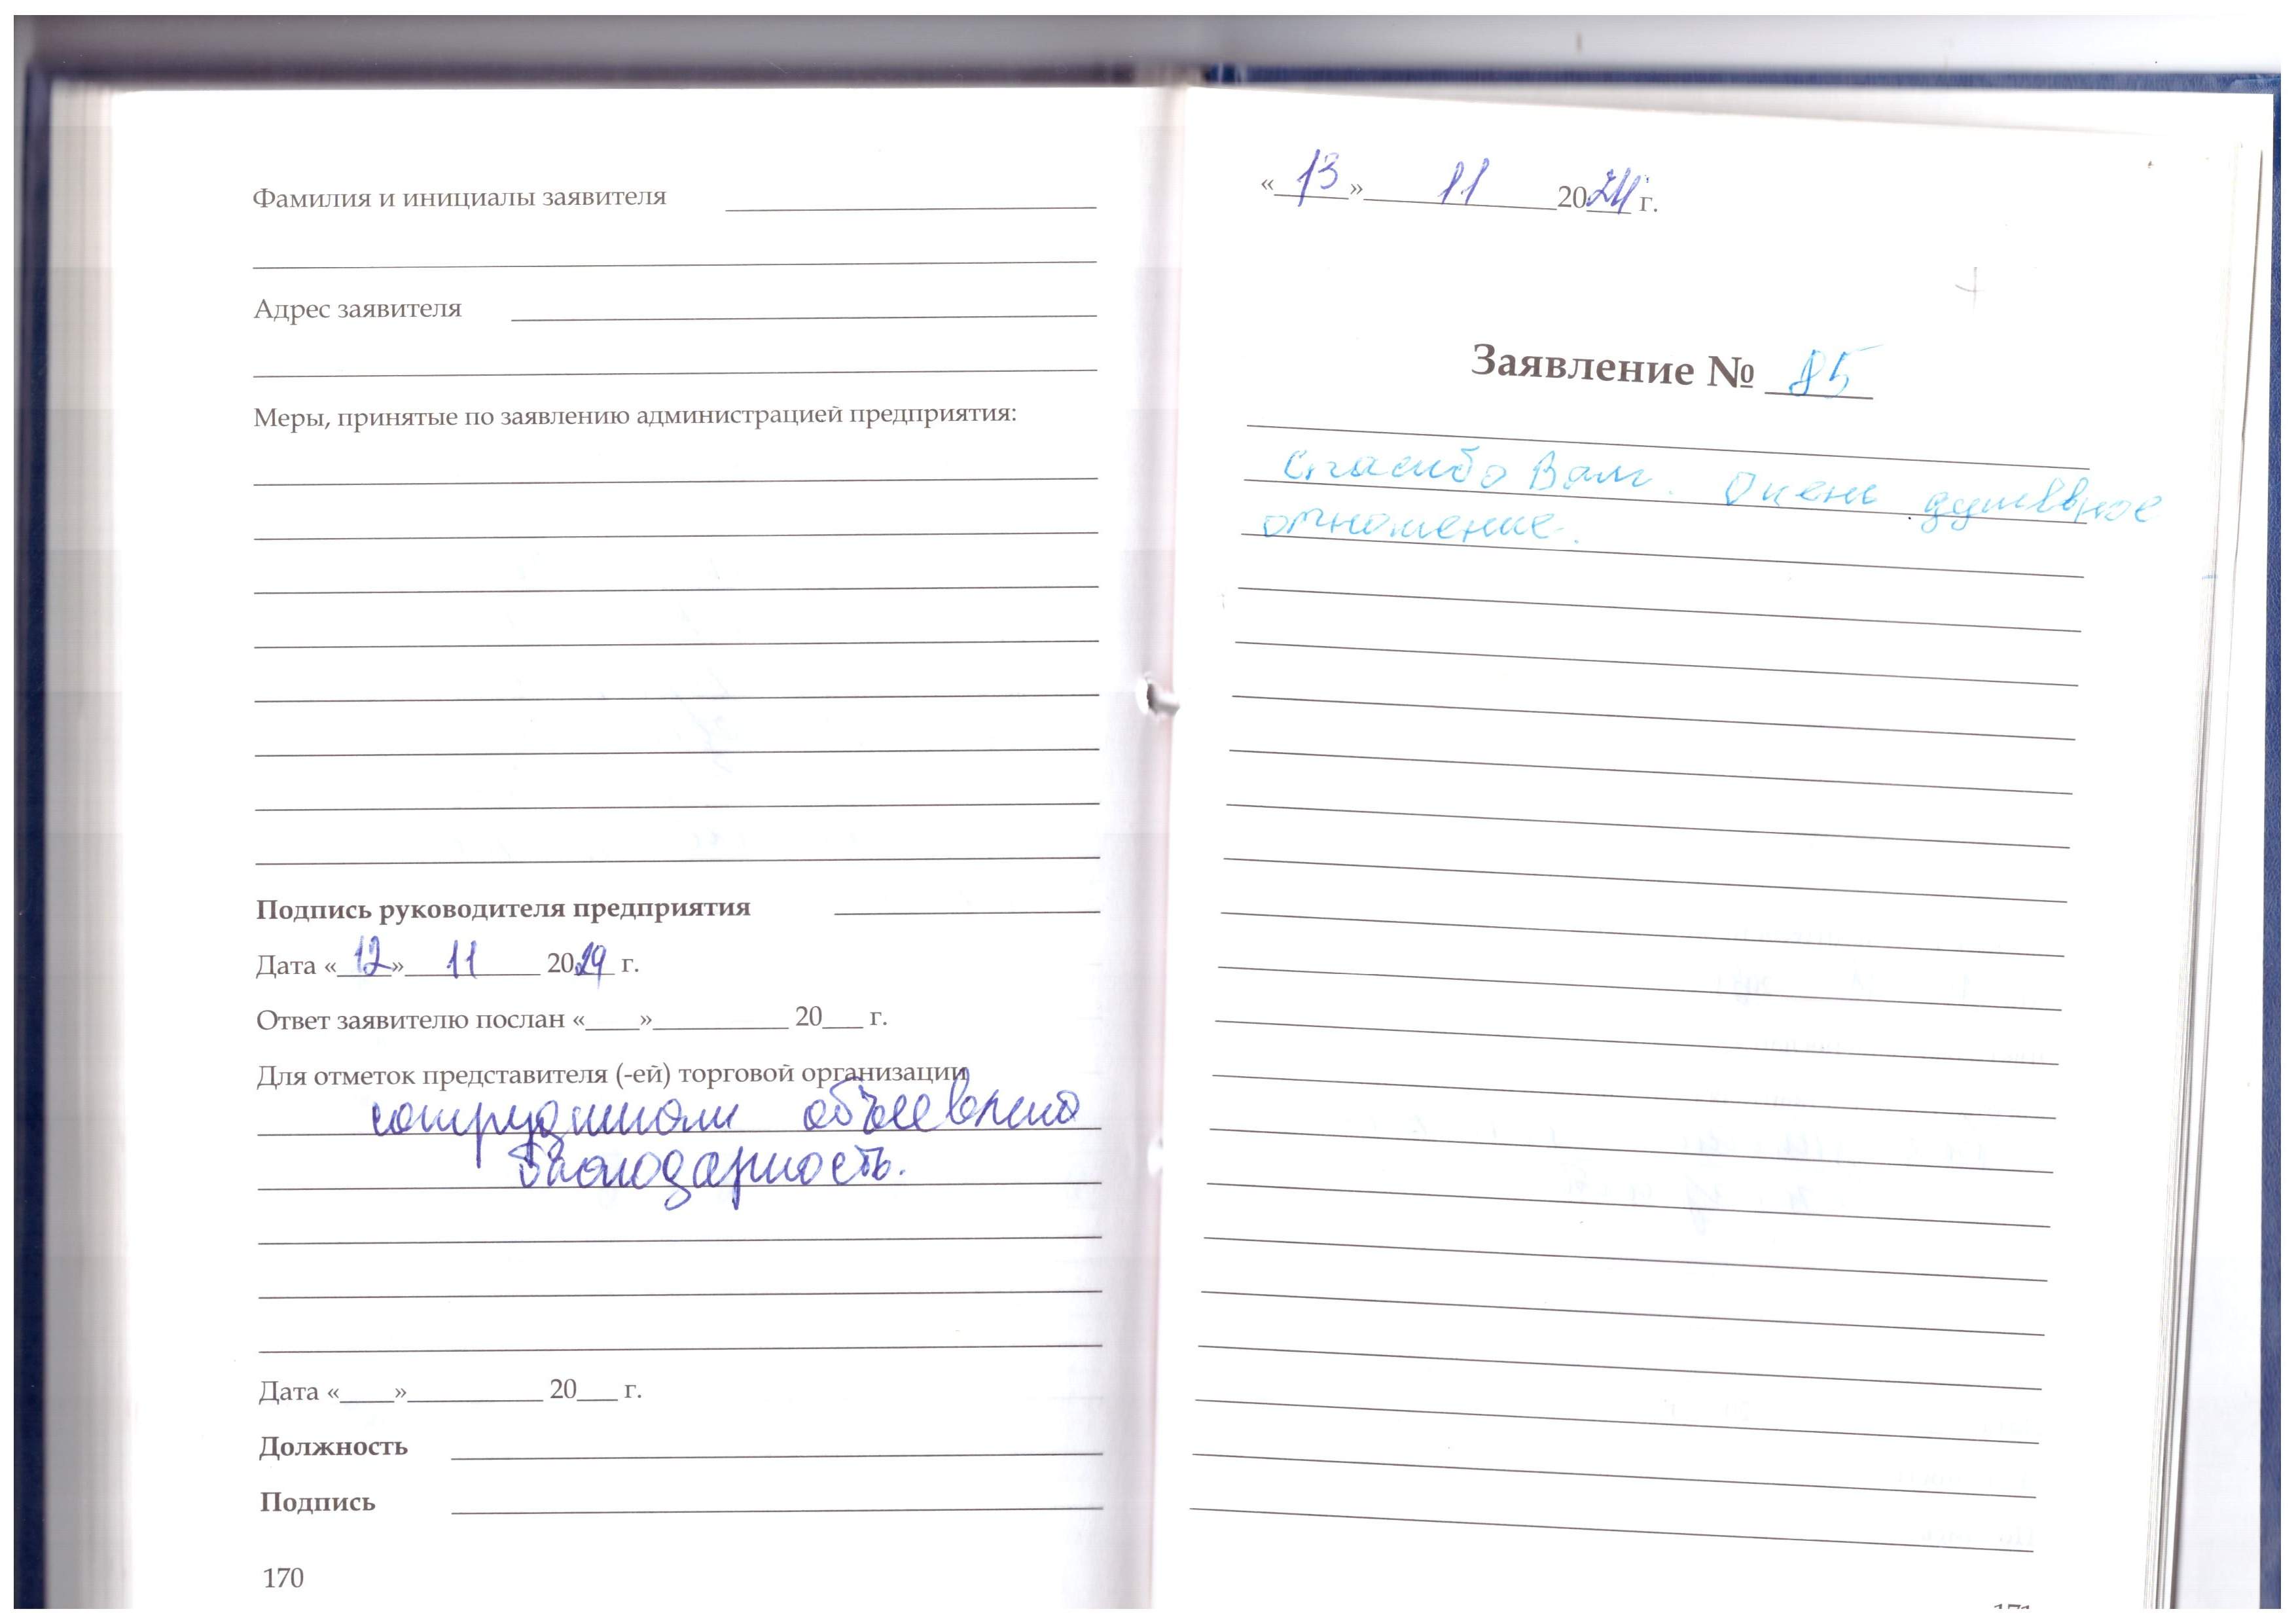 Фамилия и инициалы заявителя
Адрес заявителя
Меры, принятые по заявлению администрацией предприятия:
Подпись руководителя предприятия
Дата «12» 11 20 г.
Ответ заявителю послан «____»__________ 20___ г.
Для отметок представителя (-ей) торговой организации
сотрудникам объявлена
благодарность.
Дата «____»__________ 20___ г.
Должность
Подпись
170
«13» 11 2024 г.
Заявление № 85
Спасибо Вам. Очень душевное
отношение.
171